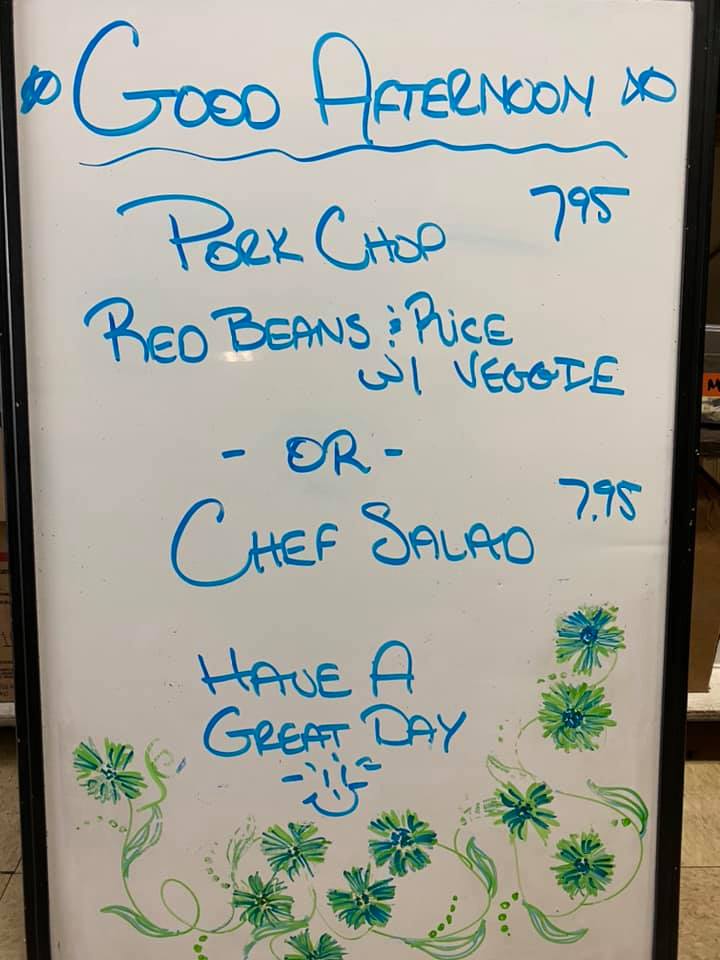 GOOD AFTERNOON
7.95
PORK CHOP
RED BEANS & RICE
W/ VEGGIE
- OR -
7.95
CHEF SALAD
HAVE A
GREAT DAY